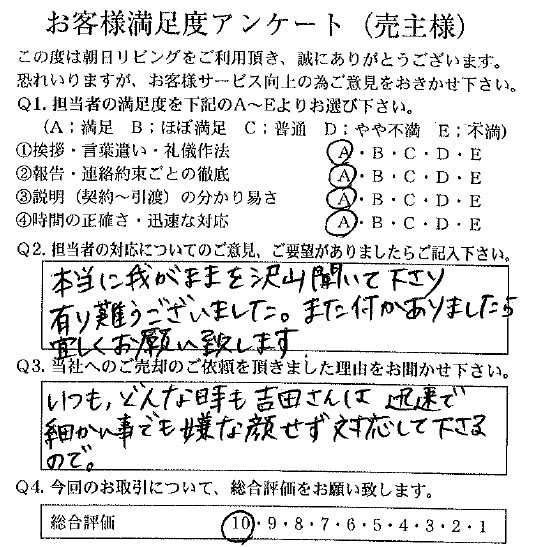 お客様満足度アンケート（売主様）
この度は朝日リビングをご利用頂き、誠にありがとうございます。
恐れいりますが、お客様サービス向上の為ご意見をおきかせ下さい。
Q1. 担当者の満足度を下記のA～Eよりお選び下さい。
（A；満足　B；ほぼ満足　C；普通　D；やや不満　E；不満）
①挨拶・言葉遣い・礼儀作法　A・B・C・D・E
②報告・連絡約束ごとの徹底　A・B・C・D・E
③説明（契約～引渡）の分かり易さ　A・B・C・D・E
④時間の正確さ・迅速な対応　A・B・C・D・E
Q2. 担当者の対応についてのご意見、ご要望がありましたらご記入下さい。
本当に我がままを沢山聞いて下さり
有り難うございました。また何かありましたら
宜しくお願い致します
Q3. 当社へのご売却のご依頼を頂きました理由をお聞かせ下さい。
いつも、どんな時も吉田さんは迅速で
細かい事でも嫌な顔せず対応して下さる
ので。
Q4. 今回のお取引について、総合評価をお願い致します。
総合評価　10・9・8・7・6・5・4・3・2・1